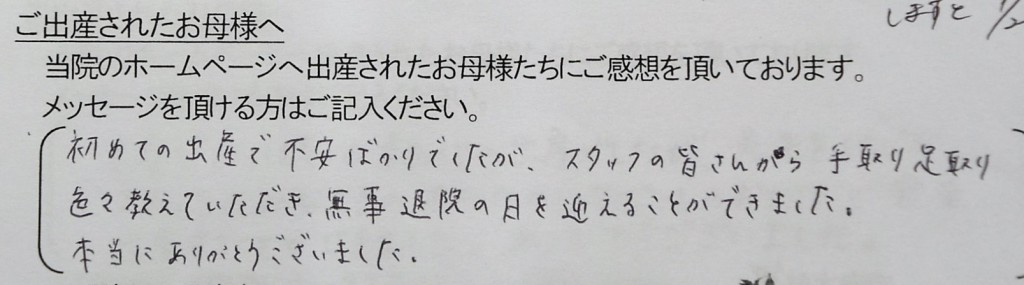 しますと 1/2
ご出産されたお母様へ
当院のホームページへ出産されたお母様たちにご感想を頂いております。
メッセージを頂ける方はご記入ください。
初めての出産で不安ばかりでしたが、スタッフの皆さんがら手取り足取り
色々教えていただき、無事退院の日を迎えることができました。
本当にありがとうございました。